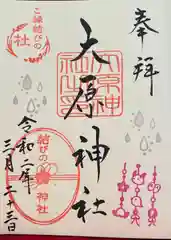 奉拝
大原神社
ご縁結びの
社
令和二年
三月二十三日
結びの
神社